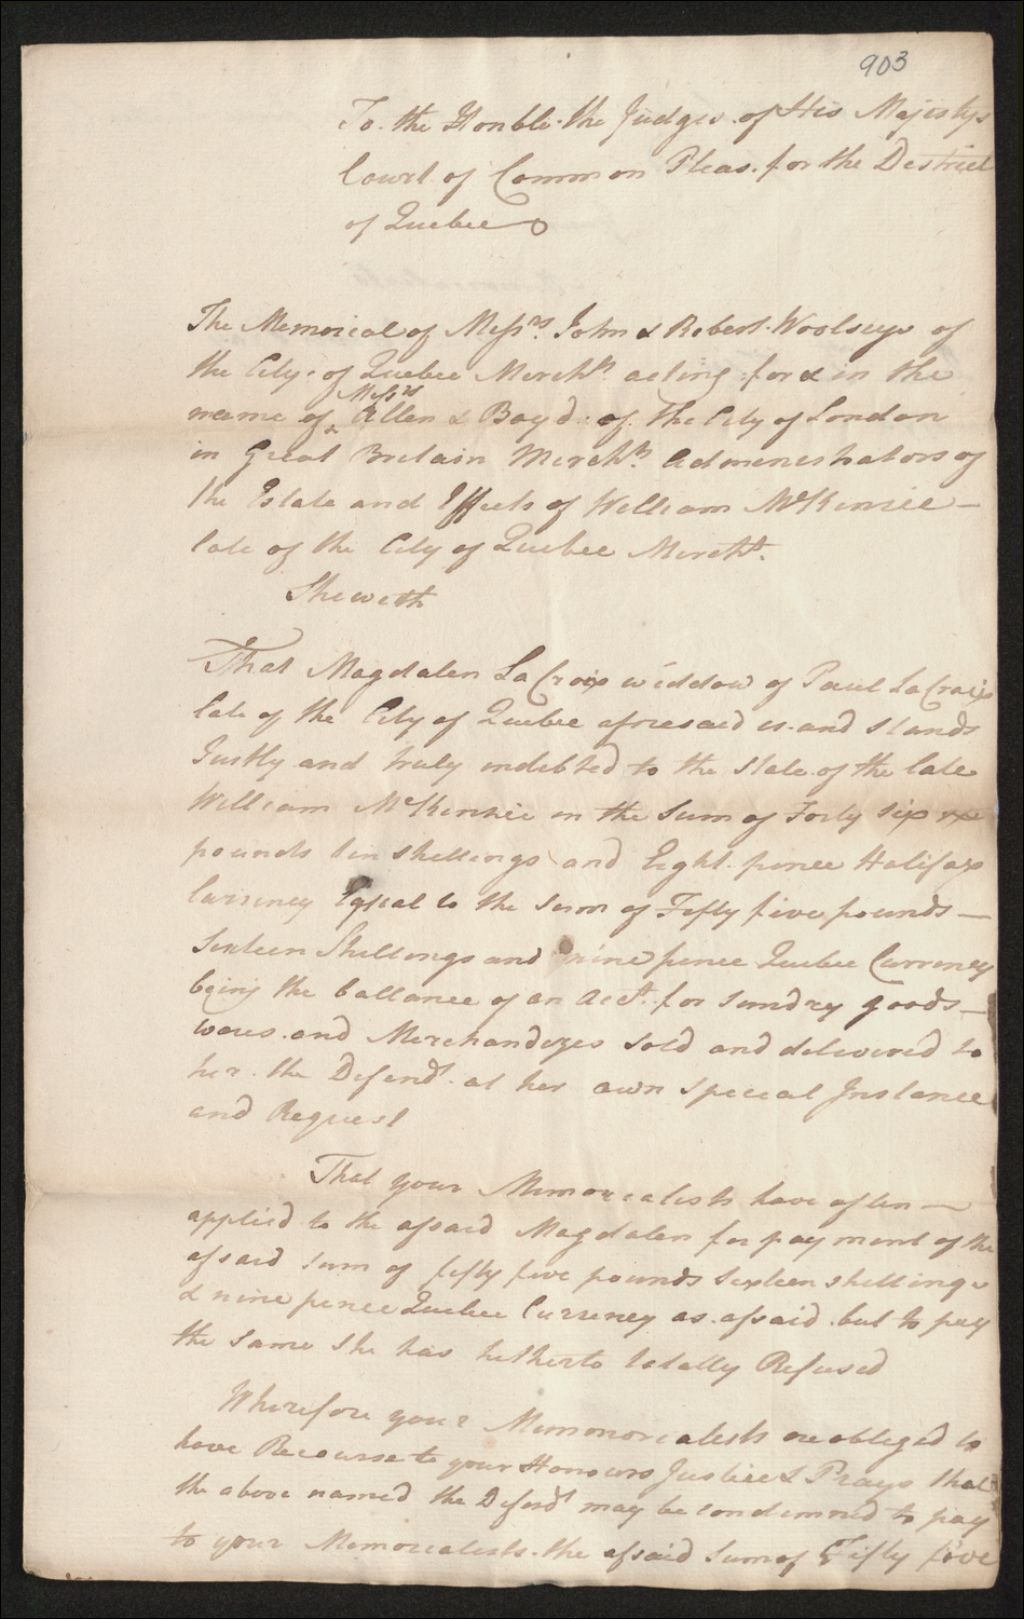 903
To. the Honble. the Judges. of His Majestys
Court of Common Pleas. for the Destrict
of Quebec
The Memorial of Messrs. John & Robert. Woolseys of
the City. of Quebec Merchts. acting for & in the
Messrs
name of Allen & Boyd. of. the City of London
in Great Britain Merchts. Admenestrators of
the Estate and Effects of William McKenzie —
late of the City of Quebec Mercht.
Sheweth
That Magdalen LaCroix widdow of Paul LaCroix
late of the City of Quebec aforesaid is. and stands
Justly and truly indebted to the state. of the late
William McKenzie in the sum of Forty six
pounds ten shellings and Eight. pence Halifax
Currency Equal to the sum of Fifty five pounds —
Sixteen Shellings and nine pence Quebec Currency
being the ballance of an Acct. for sundry goods —
wares. and Merchandizes sold and delivered to
her. the Defendt. at her own special Instance
and Request
That your Memorealists have often —
applied to the afsaid Magdalen for payment of the
afsaid sum of fifty five pounds sixteen shellings
& nine pence Quebec Currency as. afsaid. but to pay
the same she has hetherto totally Refused
Wherefore your Memmorealists are obleged to
have Recourse to your Honours Justice & Prays that
the above named the Defendt may be condemned to pay
to your Memorealists. the afsaid sum of Fifty five